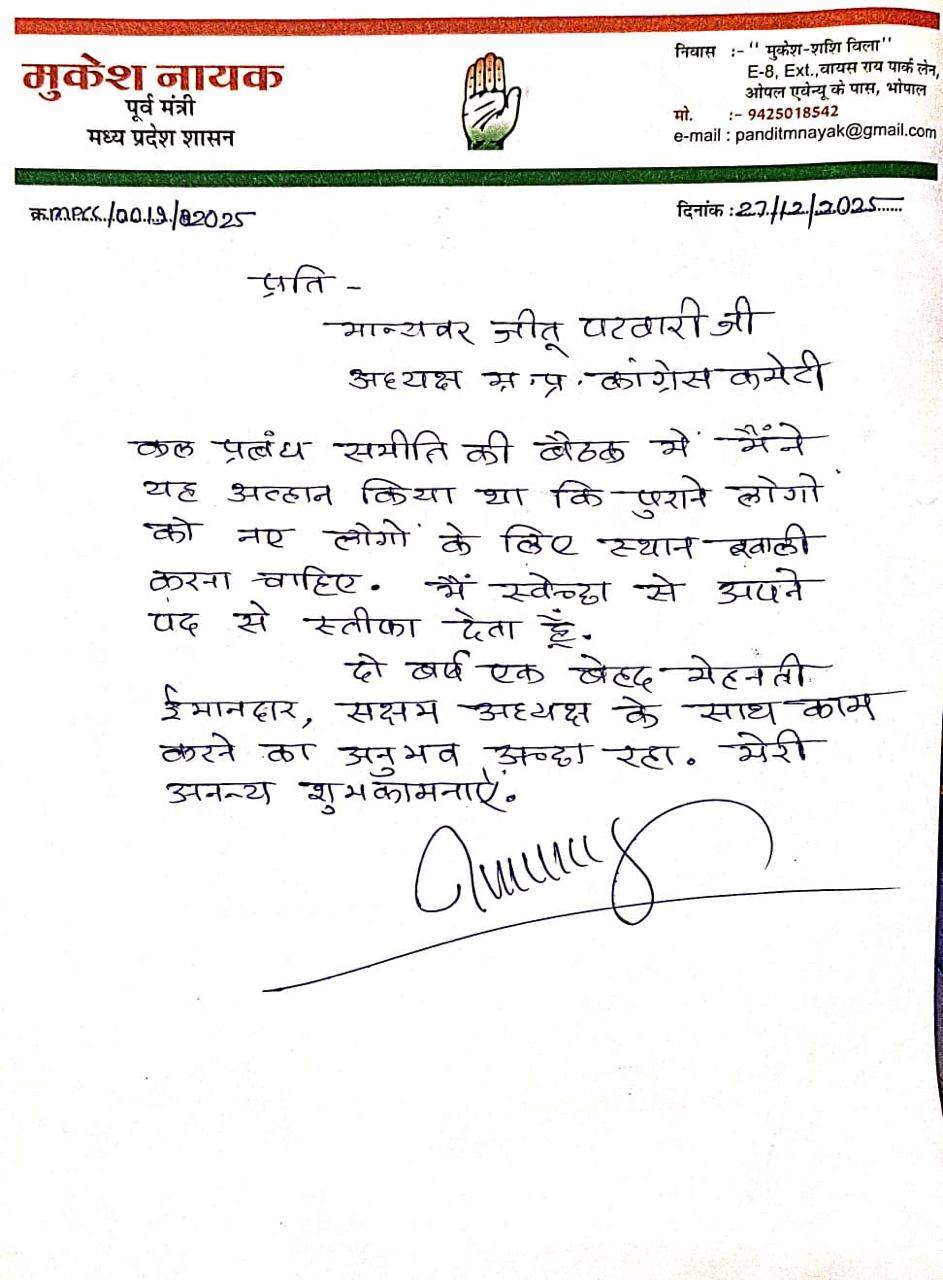 मुकेश नायक
पूर्व मंत्री
मध्य प्रदेश शासन
निवास :- " मुकेश-शशि विला"
E-8, Ext.,वायस राय पार्क लेन,
ओपल एवेन्यू के पास, भोपाल
मो. :- 9425018542
e-mail : panditmnayak@gmail.com
क्र.MPCC/0019/2025
दिनांक :27/12/2025
प्रति -
मान्यवर जीतू पटवारी जी
अध्यक्ष म.प्र. कांग्रेस कमेटी
कल प्रबंध समीति की बैठक में मैंने
यह किया था कि पुराने लोगों
को नए लोगों के लिए स्थान खाली
करना चाहिए. मैं स्वेच्छा से अपने
पद से स्तीफा देता हूँ.
दो वर्ष एक बेहद मेहनती
ईमानदार, सक्षम अध्यक्ष के साथ काम
करने का अनुभव अच्छा रहा. मेरी
अनन्य शुभकामनाऐं.